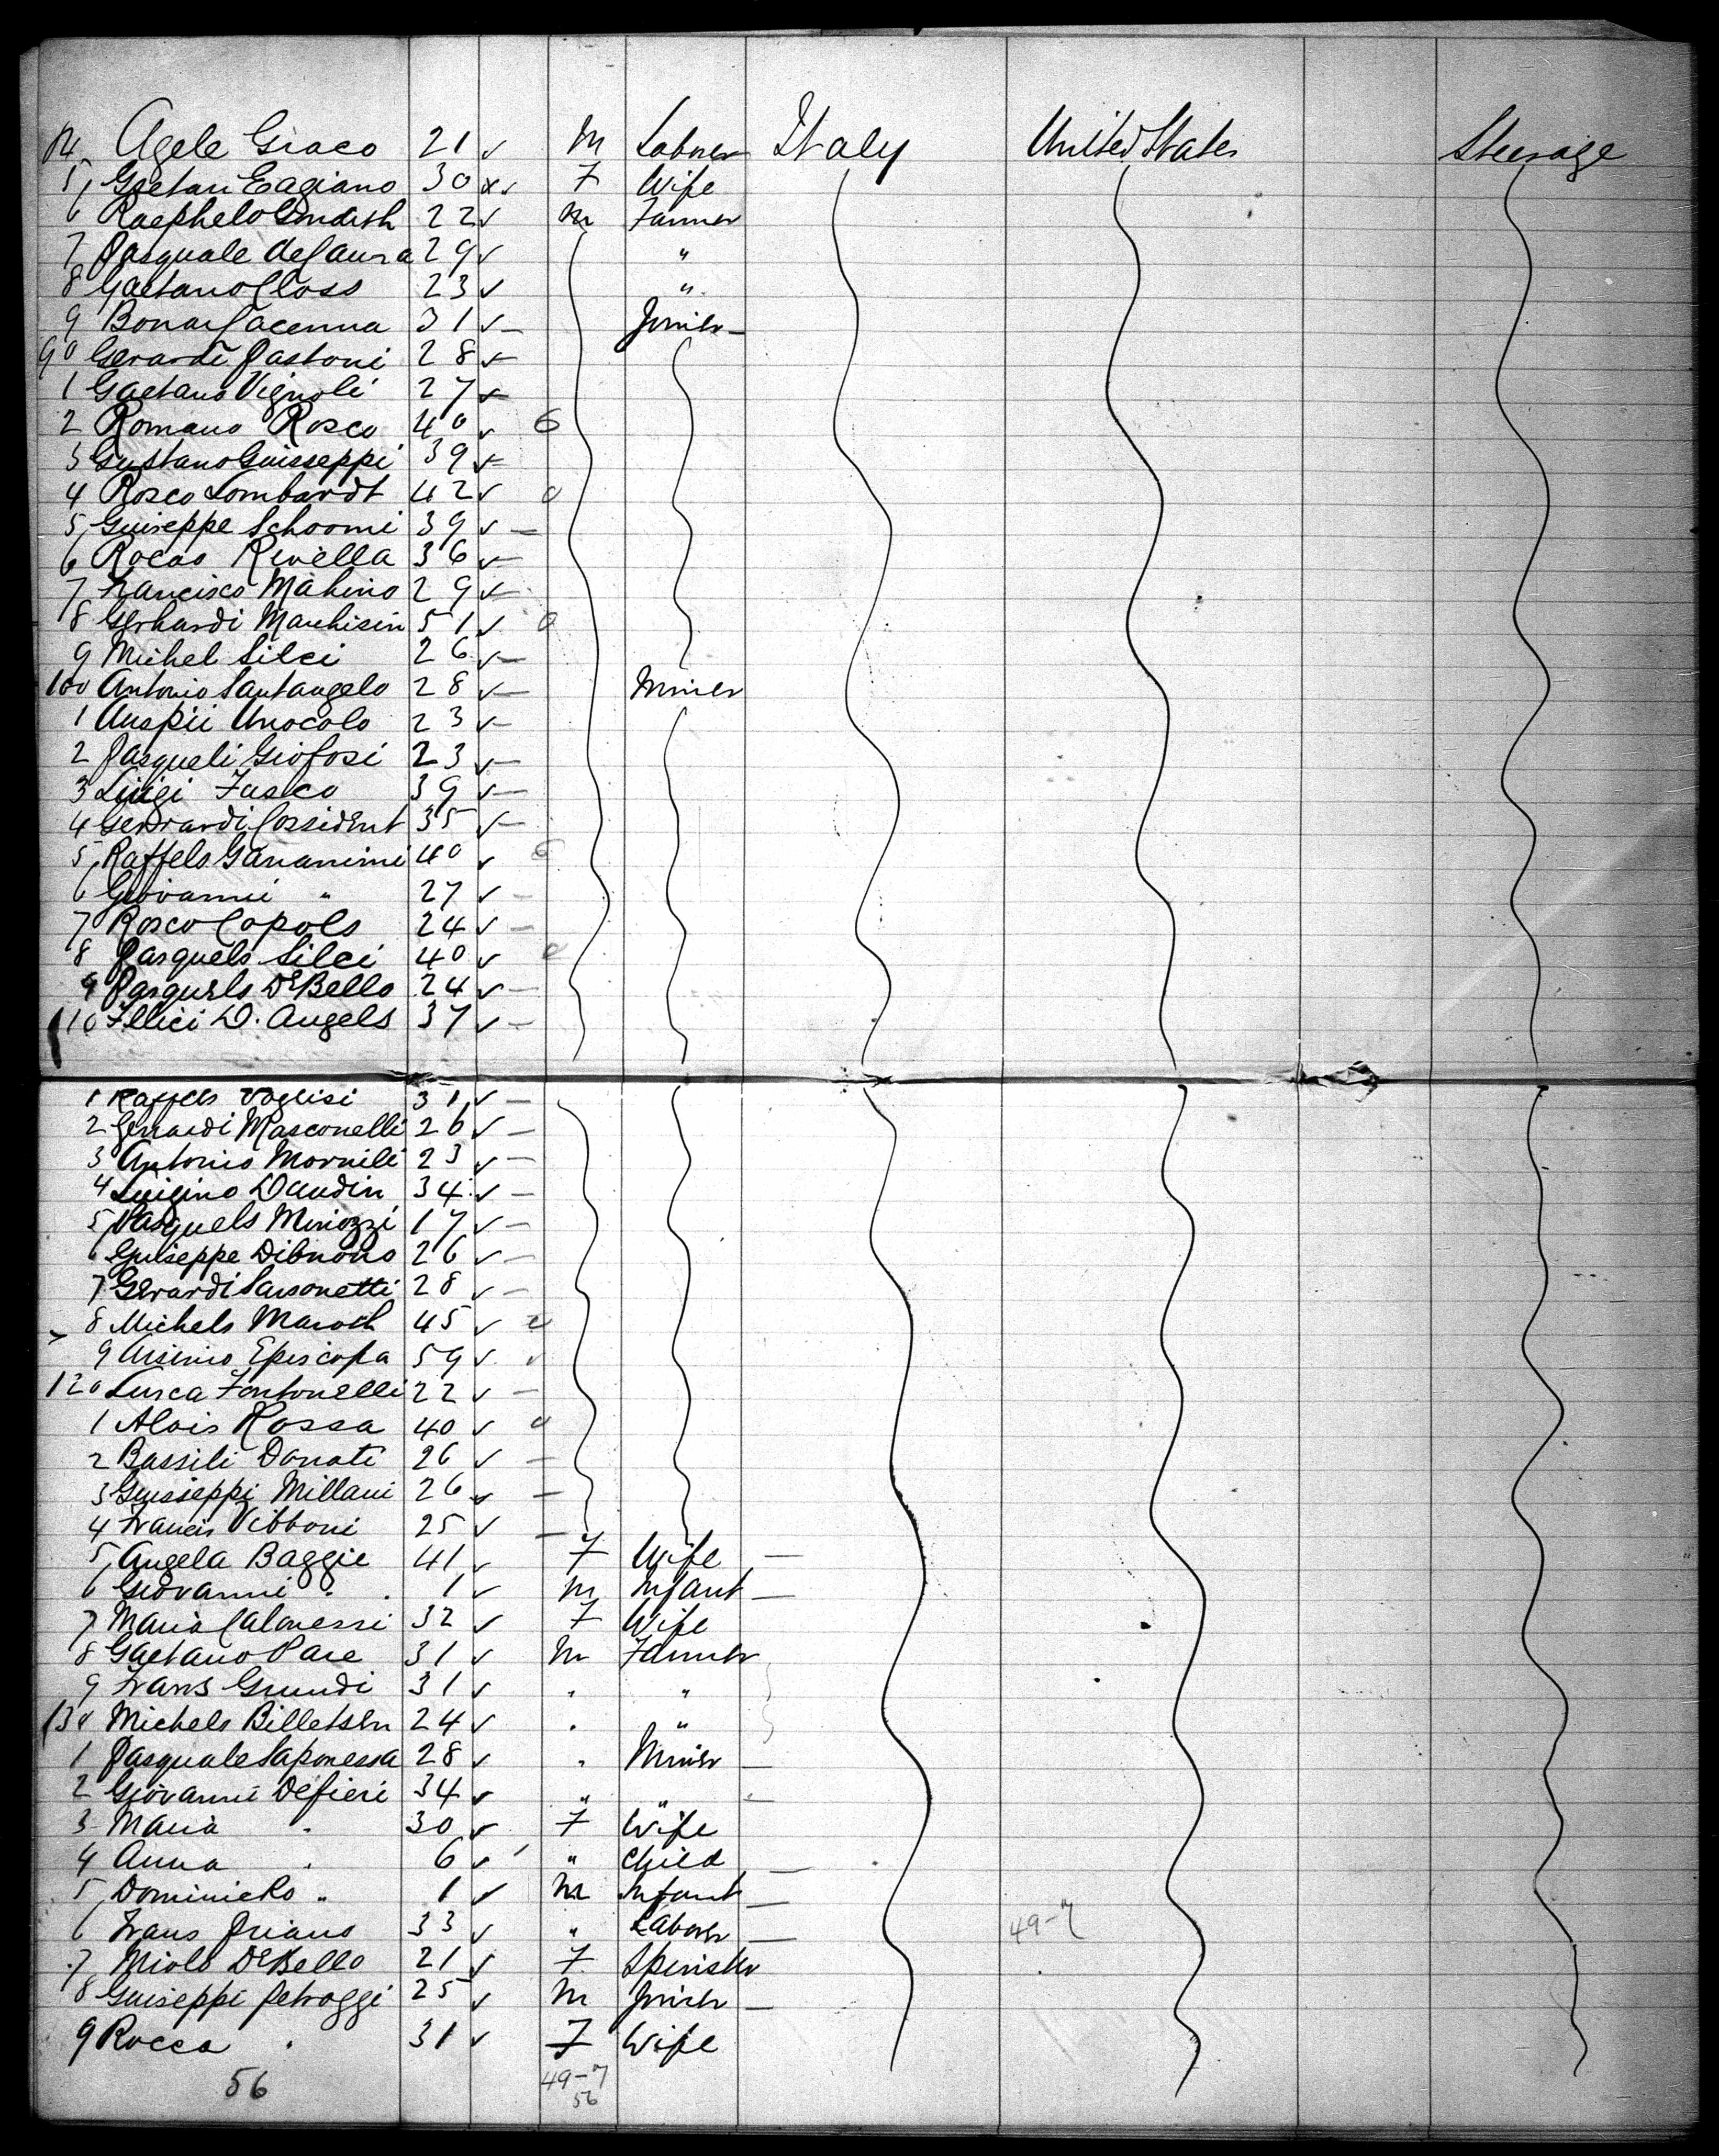 84 Agele Graco 21 ✓ M Laborer Italy United States Steerage
5 Gaetan Eagiano 30 x✓ F Wife
6 Raephelo 22 ✓ M Farmer
7 Pasquale deCaura 29 ✓ "
8 Gaetano Closs 23 ✓ "
9 Bonai Cacenna 31 ✓ Joiner
90 Gerardi Pastoni 28 ✓
1 Gaetano Vignoli 27 ✓
2 Romano Rosco 40 ✓
3 Gustano Guisseppi 39 ✓
4 Rosco Lombardt 42 ✓
5 Guiseppe Schoomi 39 ✓
6 Rocao Rivella 36 ✓
7 Francisco Mahino 29 ✓
8 Gerhardi Marchisin 51 ✓
9 Michel Silci 26 ✓
100 Antonio Santangelo 28 ✓ Miner
1 Auspii Anocolo 23 ✓
2 Pasqueli Giofosi 23 ✓
3 Luigi Fusco 39 ✓
4 Gerrardi Cossident 35 ✓
5 Raffelo Gananimi 40 ✓
6 Giovanni " 27 ✓
7 Rosco Copolo 24 ✓
8 Pasquelo Silci 40 ✓
9 Pasquelo DeBello 24 ✓
110 Fellici D. Angelo 37 ✓
1 Raffelo Voglisi 31 ✓
2 Gerrardi Masconelli 26 ✓
3 Antonio Mornili 23 ✓
4 Luigino Daudin 34 ✓
5 Pasquelo Miniozzi 17 ✓
6 Guiseppe Dibnono 26 ✓
7 Gerardi Sansonetti 28 ✓
8 Michelo Maroch 45 ✓
9 Arsinio Episcopa 59 ✓
120 Lurca Fontonelli 22 ✓
1 Alois Rossa 40 ✓
2 Bassili Donati 26 ✓
3 Guisseppi Millani 26 ✓
4 Francis Vibboni 25 ✓
5 Angela Baggie 41 ✓ F Wife
6 Giovanni " 1 ✓ M Infant
7 Maria Calmessi 32 ✓ F Wife
8 Gaetano Pace 31 ✓ M Farmer
9 Frans Grundi 31 ✓ " "
130 Michelo Billetsen 24 ✓ " "
1 Pasquale Saponessa 28 ✓ " Miner
2 Giovanni Defieri 34 ✓ " "
3 Maria " 30 ✓ F Wife
4 Anna " 6 ✓ " Child
5 Dominicko " 1 ✓ M Infant
6 Frans Priano 33 ✓ " Laborer 49-7
7 Miolo DeBello 21 ✓ F Spinster
8 Guiseppi Petroggi 25 ✓ M Joiner
9 Rocca " 31 ✓ F Wife
56 49-7
56